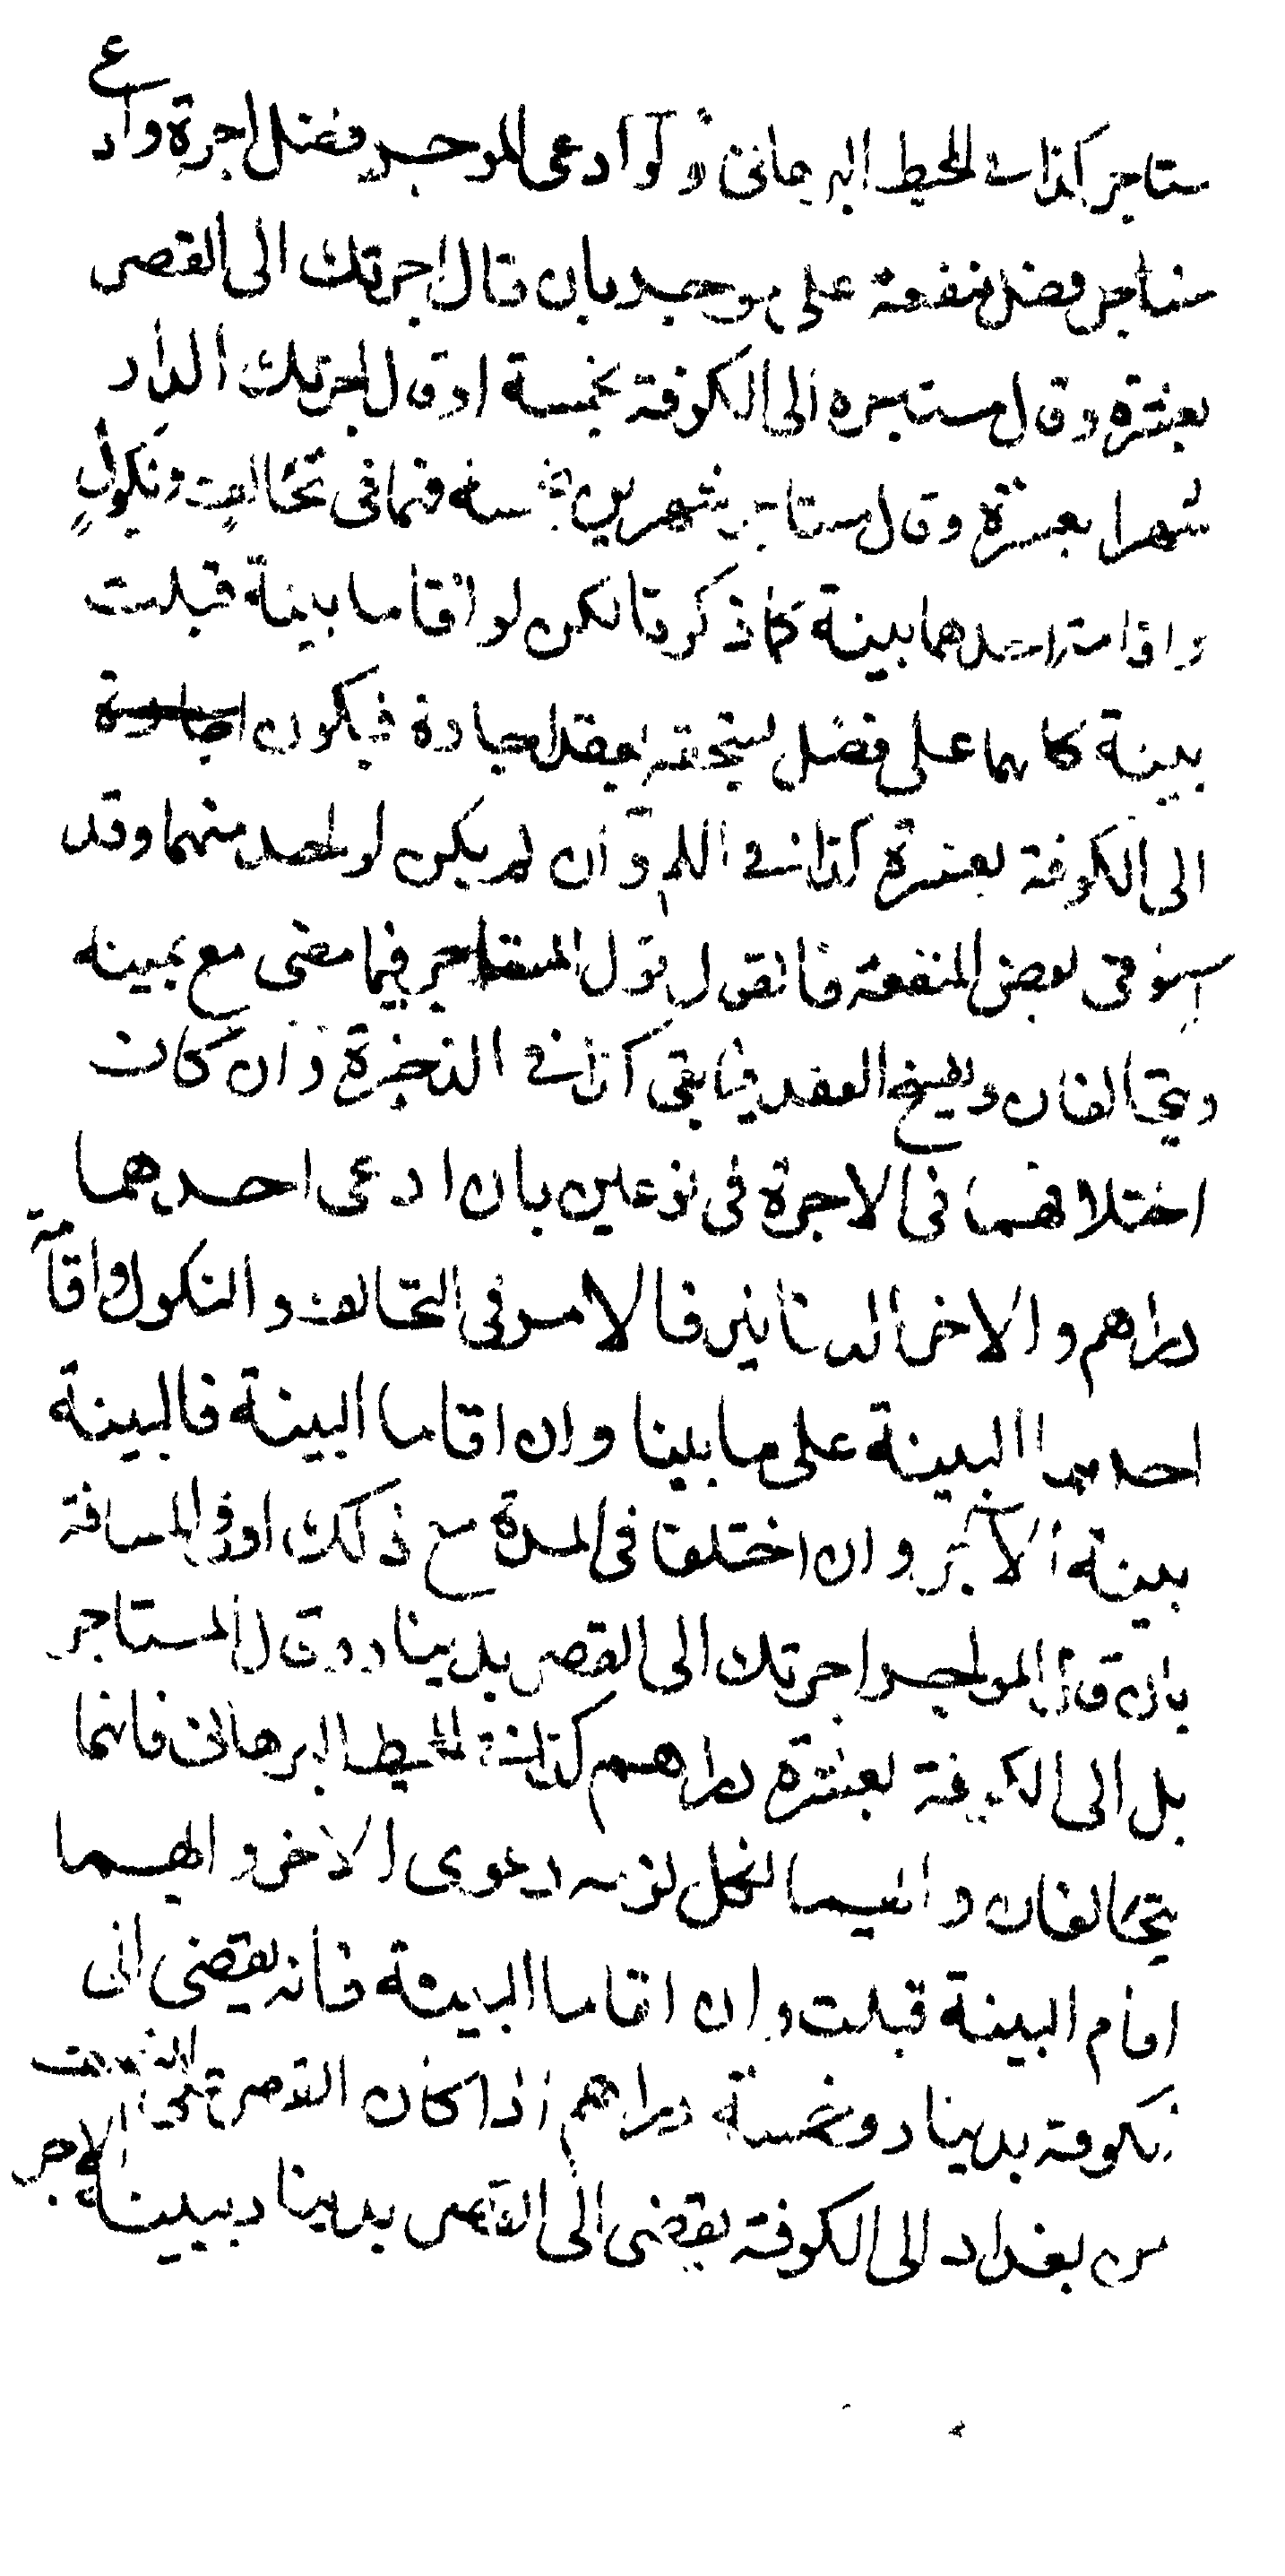 ستاجر كذا في المحيط البرهاني ولو ادعى الموجر فضل اجرة وادع
ستاجر فضل منفعة على موجد بان قال اجرتك الى القصر
بعشرة وقال مستاجره الى الكوفة بخمسة او قال اجرتك الدار
شهرا بعشرة وقال مستاجر شهرين فهما في تحالف ونكول
واقامة احدهما بينة كما ذكرنا لكن لو اقاما بينة قبلت
بينة كل منهما على فضل يستحقه بعقد اجارة فيكون اجارة
الى الكوفة بعشرة كذا في وان لم يكن لواحد منهما وقد
استوفى بعض المنفعة فالقول قول المستاجر فيما مضى مع يمينه
ويتحالفان ويفسخ العقد فيما بقى كذا في الذخيرة وان كان
اختلافهما في الاجرة في نوعين بان ادعى احدهما
دراهم والاخر الدنانير فالامر في التحالف والنكول واقامة
احدهما البينة على ما بينا وان اقاما البينة فالبينة
بينة الآجر وان اختلفا في المدة مع ذلك او في المسافة
بان قال المواجر اجرتك الى القصر بدينار وقال المستاجر
بل الى الكوفة بعشرة دراهم كذا في المحيط البرهاني فانهما
يتحالفان وايهما نكل لزمه دعوى الاخر وايهما
اقام البينة قبلت وان اقاما البينة فانه يقضى الى
الكوفة بدينار وخمسة دراهم اذا كان القصر على النصف
من بغداد الى الكوفة يقضى الى القصر بدينار ببينة الاجر